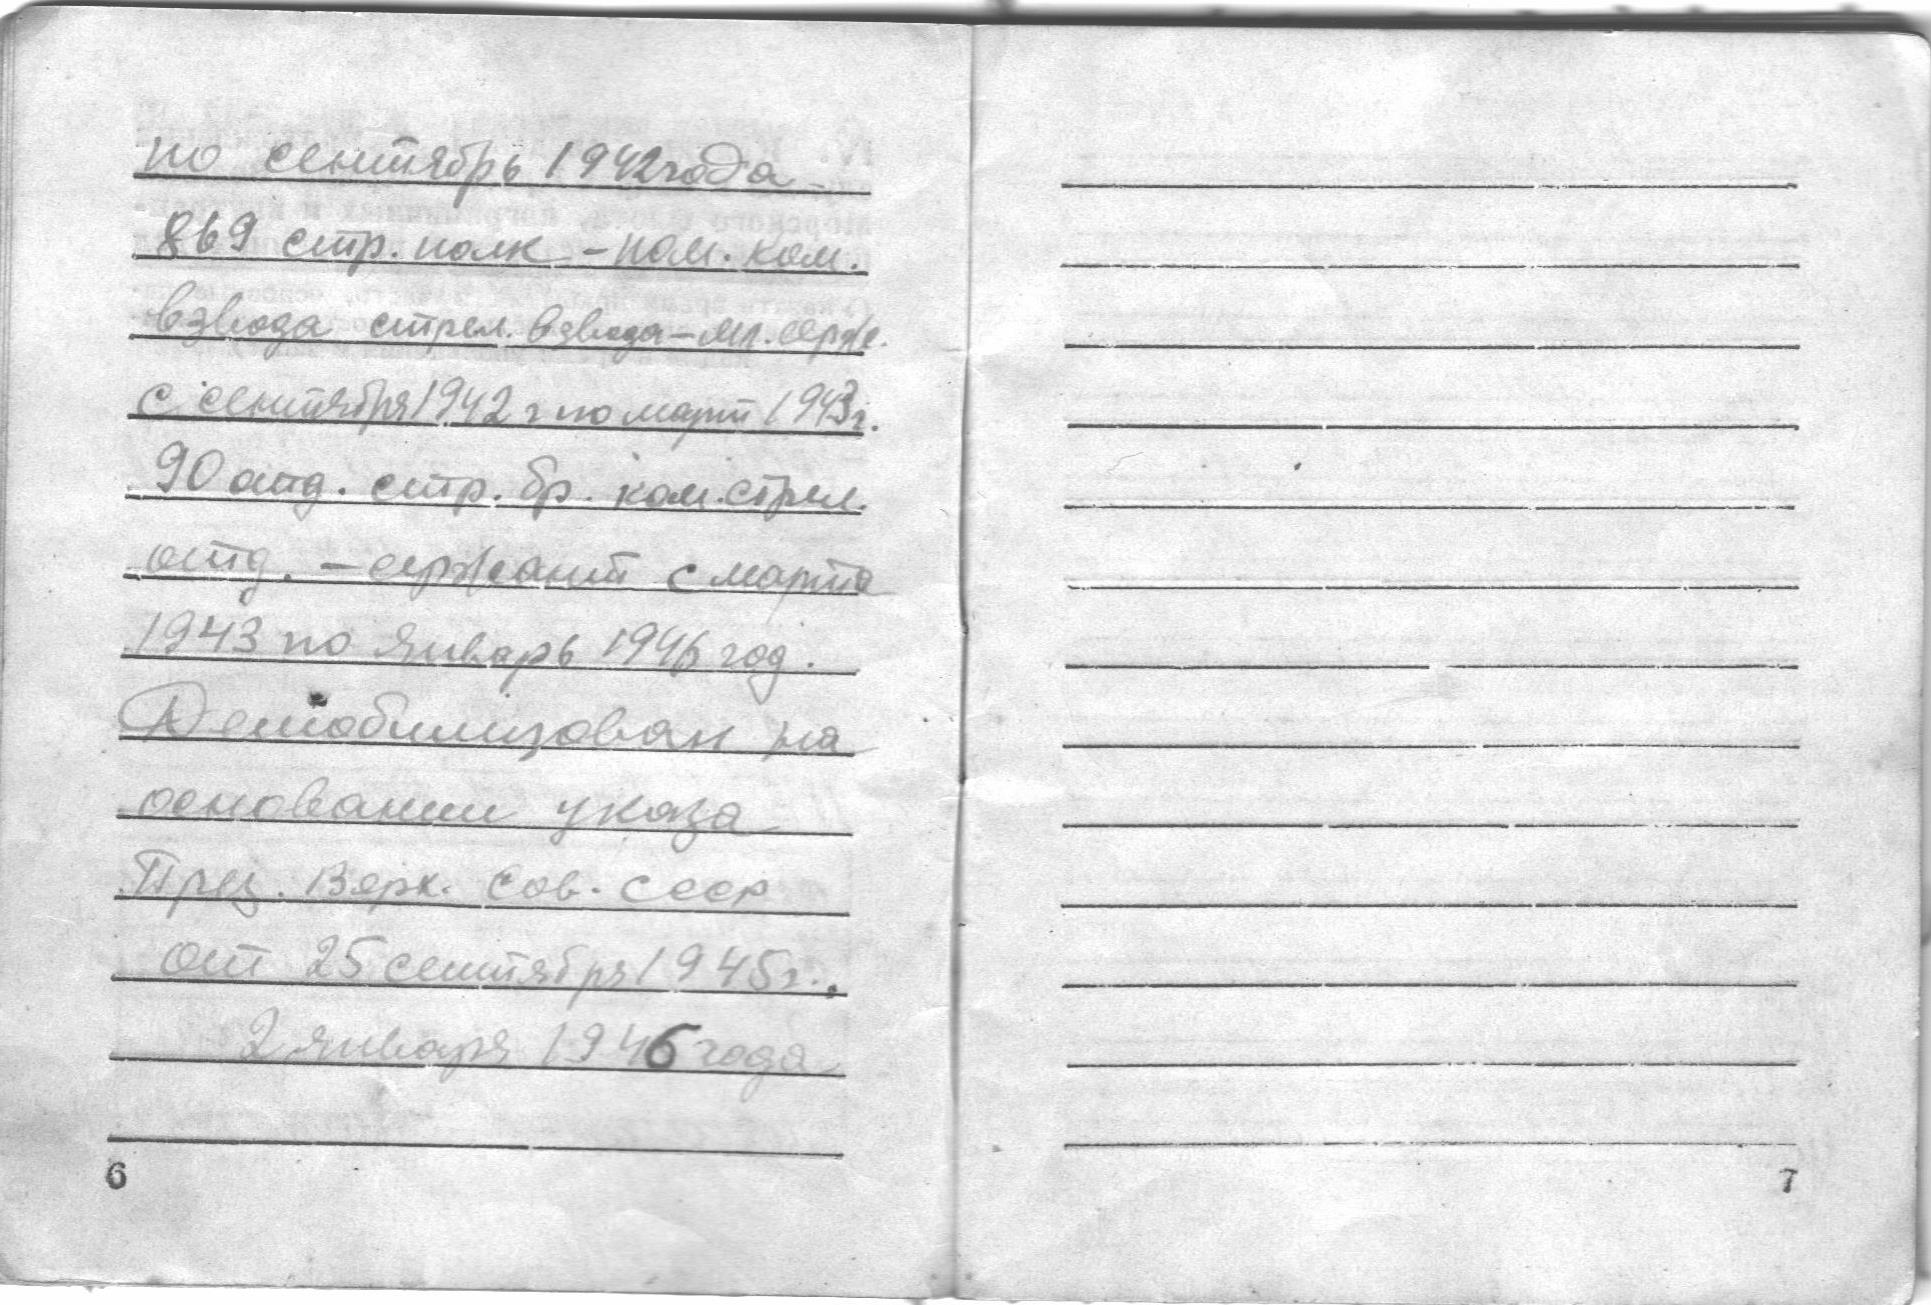 по сентябрь 1942 года
869 стр. полк – пом. ком.
взвода стрел. взвода – мл. серж.
с сентября 1942 г по март 1943 г.
90 отд. стр. бр. ком. стрел.
отд. – сержант с марта
1943 по январь 1946 год.
Демобилизован на
основании указа
През. Верх. Сов. СССР
от 25 сентября 1945 г.
2 января 1946 года
6
7